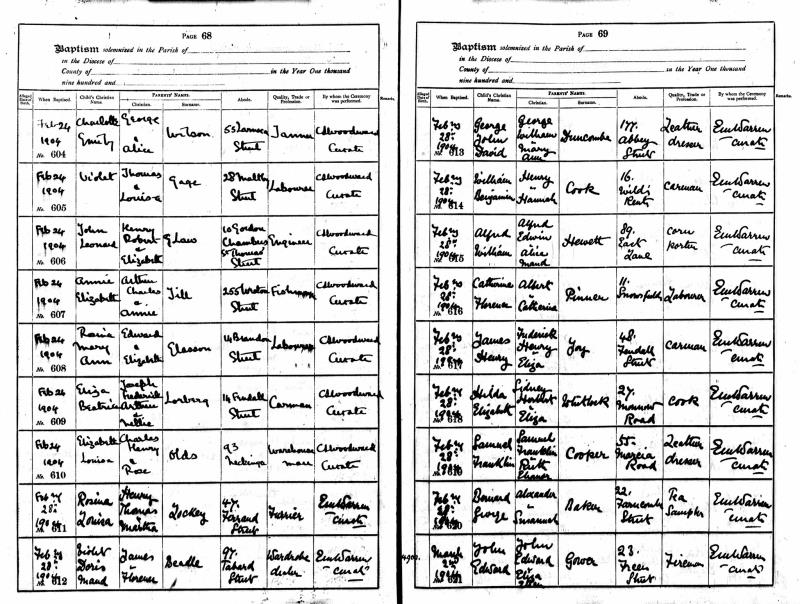 PAGE 68
Baptism solemnized in the Parish of
in the Diocese of
County of in the Year One thousand
nine hundred and
When Baptised. Child's Christian Name. PARENTS' NAMES. Christian. Surname. Abode. Quality, Trade or Profession. By whom the Ceremony was performed. Remarks.
Feb 24 1904 No. 604 Charlotte Emily George & Alice Wilson Street Tanner CAWoodward Curate
Feb 24 1904 No. 605 Violet Thomas & Louisa Gage 28 Maltby Street Labourer CAWoodward Curate
Feb 24 1904 No. 606 John Leonard Henry Robert & Elizabeth 10 Gordon Chambers St Thomas Street Engineer CAWoodward Curate
Feb 24 1904 No. 607 Annie Elizabeth Arthur Charles & Annie Till 255 Street CAWoodward Curate
Feb 24 1904 No. 608 Rosie Mary Ann Edward & Elizabeth Street Labourer CAWoodward Curate
Feb 24 1904 No. 609 Eliza Beatrice Joseph Frederick Arthur & Nellie 14 Fendall Street Carman CAWoodward Curate
Feb 24 1904 No. 610 Elizabeth Louisa Charles Henry & Rose Olds 93 Neckinger Warehouse man CAWoodward Curate
Feb 28 1904 No. 611 Rosina Louisa Henry Thomas Martha Lockey 47 Street Farrier EmWarren Curate
Feb 28 1904 No. 612 Violet Doris Maud James Florence Beadle 97 Tabard Street Wardrobe dealer EmWarren Curate
PAGE 69
Baptism solemnized in the Parish of
in the Diocese of
County of in the Year One thousand
nine hundred and
When Baptised. Child's Christian Name. PARENTS' NAMES. Christian. Surname. Abode. Quality, Trade or Profession. By whom the Ceremony was performed. Remarks.
Feb 28 1904 No. 613 George John David George William Mary Ann Duncombe 177 Abbey Street Leather dresser EmWarren Curate
Feb 28 1904 No. 614 William Benjamin Henry Hannah Cook 16 Wilds Rents carman EmWarren Curate
Feb 28 1904 No. 615 Alfred William Alfred Edwin Alice Maud Hewett 89 East Lane corn porter EmWarren Curate
Feb 28 1904 No. 616 Catherine Florence Albert Catherine Pinner 11 Snowsfields Labourer EmWarren Curate
Feb 28 1904 No. 617 James Henry Frederick Henry Eliza Joy 48 Fendall Street carman EmWarren Curate
Feb 28 1904 No. 618 Hilda Elizabeth Sidney Herbert Eliza Whitlock 27 Monnow Road Cook EmWarren Curate
Feb 28 1904 No. 619 Samuel Franklin Samuel Franklin Ruth Eleanor Cooper 55 Marcia Road Leather dresser EmWarren Curate
Feb 28 1904 No. 620 Bernard George Alexander Susannah Baker 22 Farncombe Street Tea Sampler EmWarren Curate
1904 No. 621 John Edward John Edward Eliza Ellen Gower 23 Frean Street Fireman EmWarren Curate